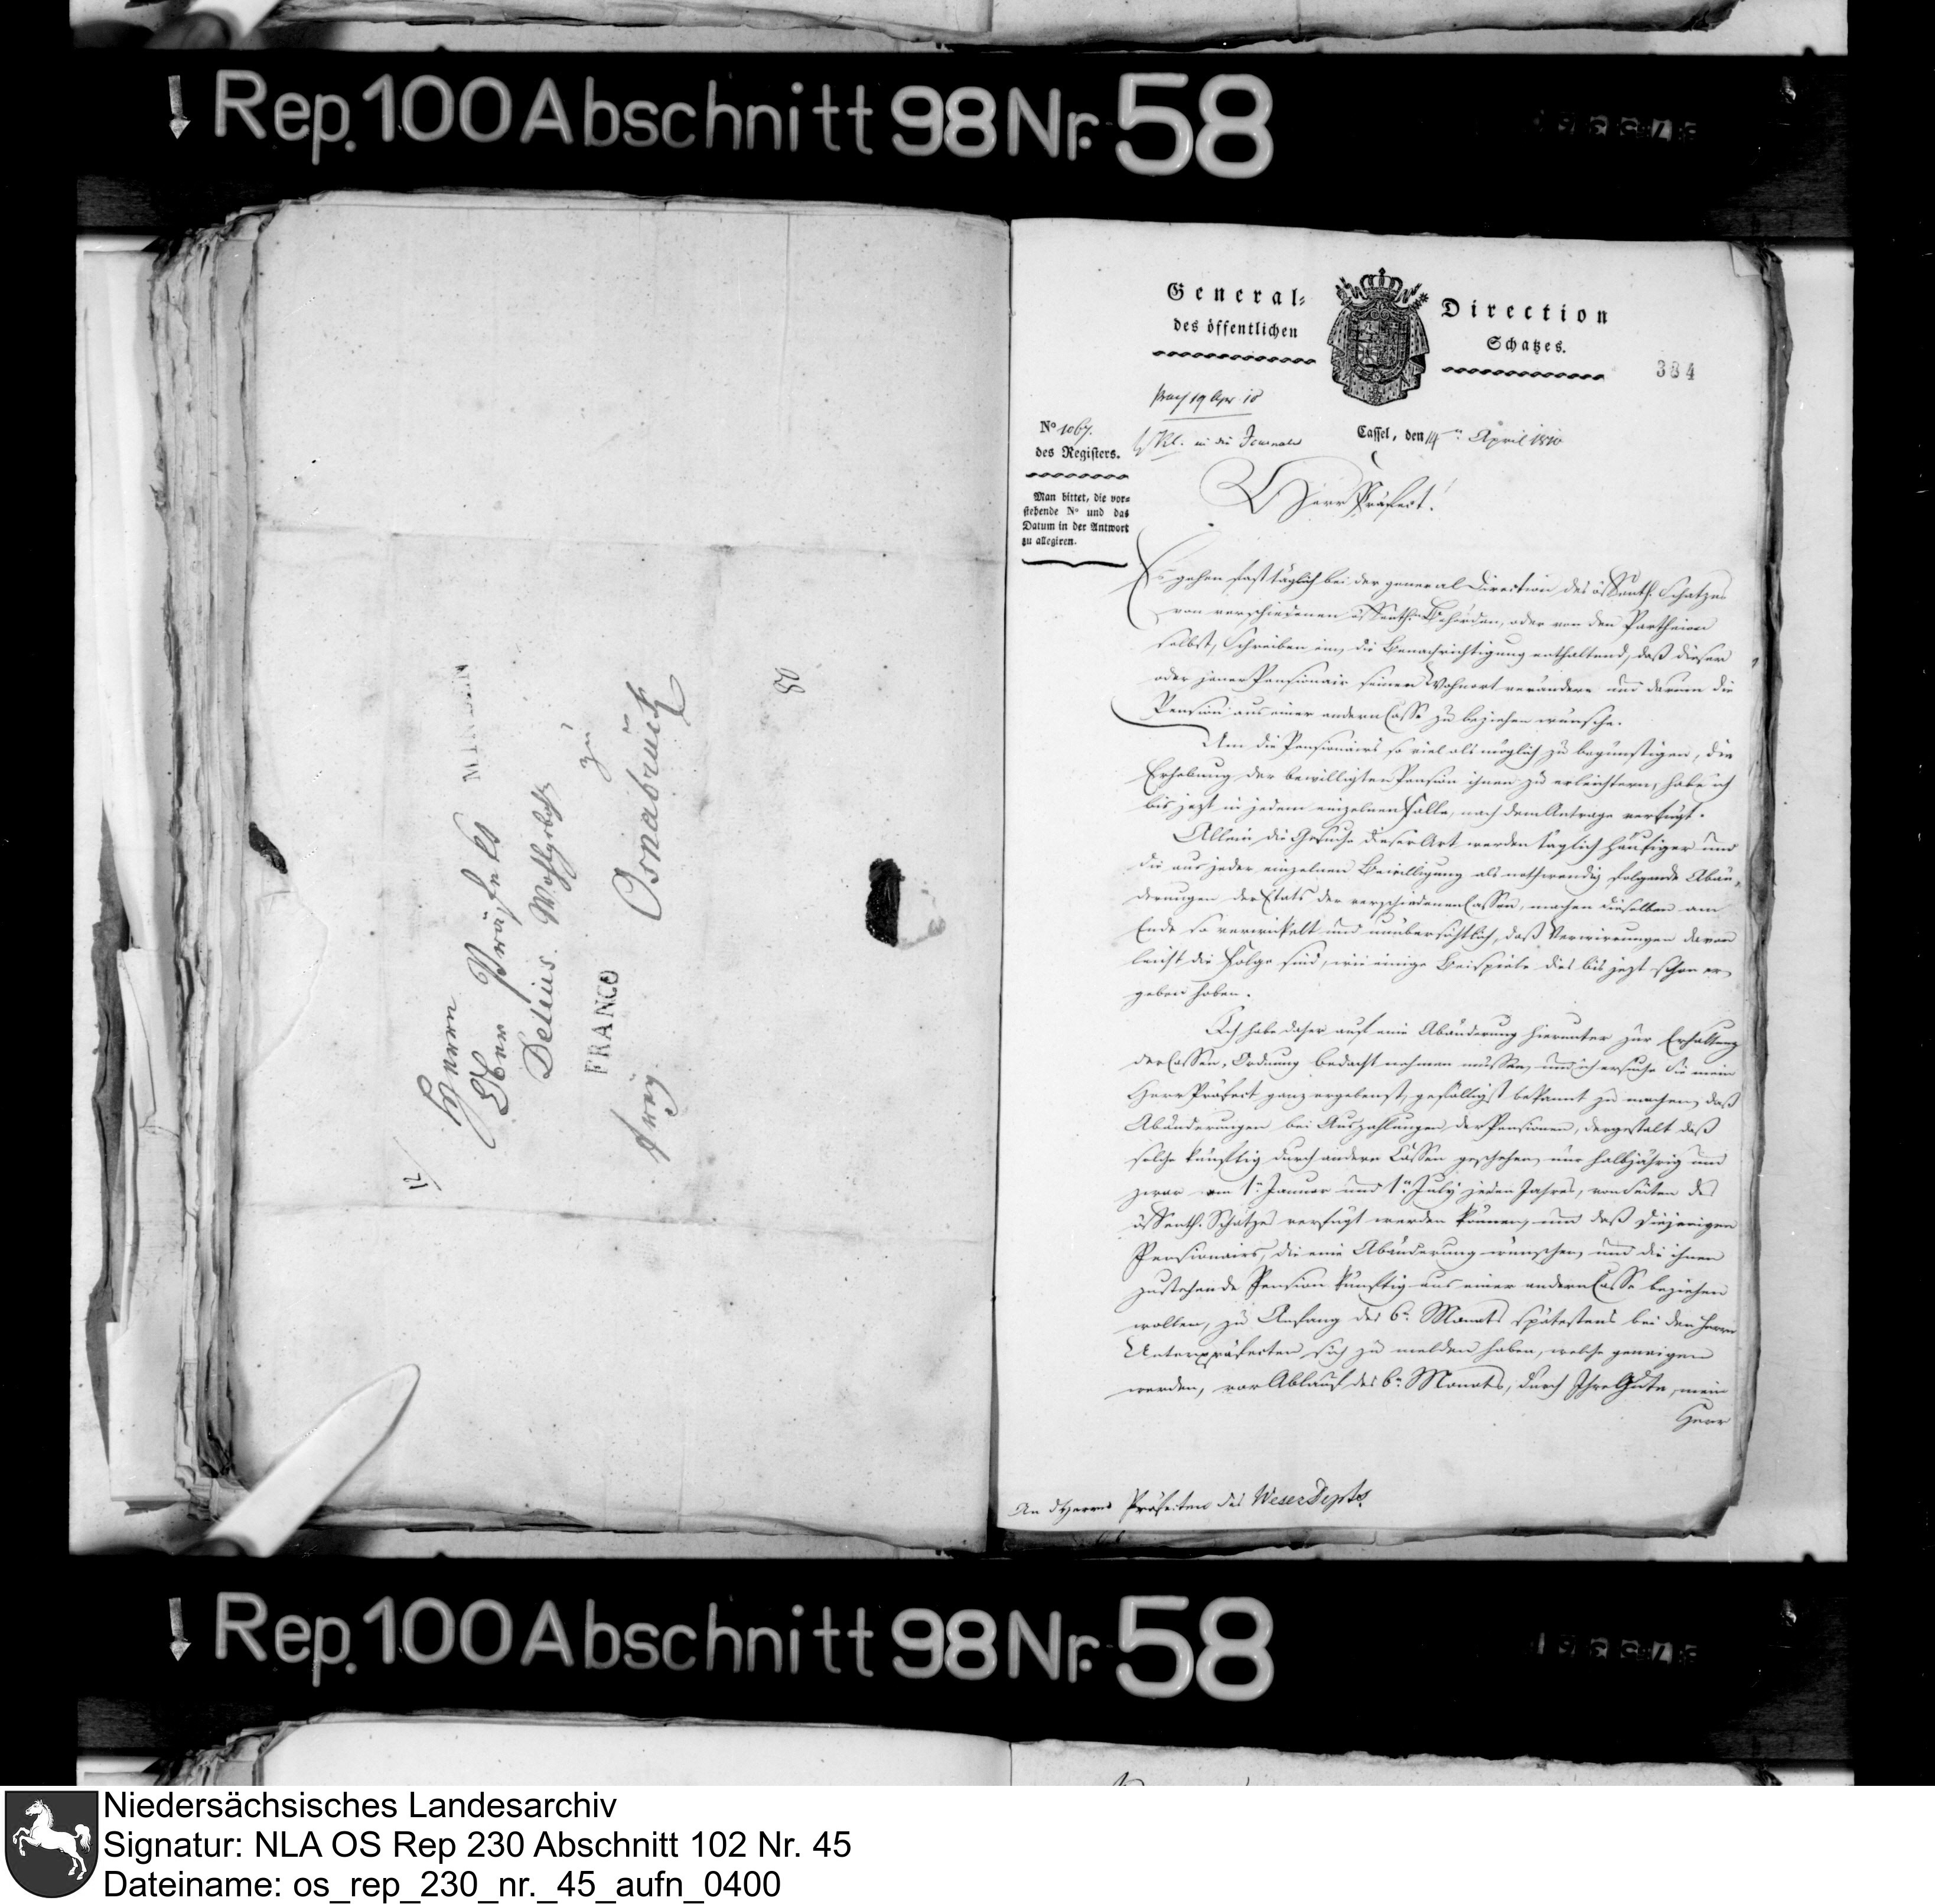 Rep. 100 Abschnitt 98 Nr. 58
Herrn
Präfect
Delius. Wohlgeb.
zu
Osnabrück
FRANCO
frey.
MINDEN
General-Direction
des öffentlichen Schatzes.
384
19 Apr 10
No 1067.
des Registers.
in die Journale
Cassel, den 14ten April 1810
Man bittet, die vor-
stehende No und das
Datum in der Antwort
zu allegiren.
Herr Präfect!
Es gehen fast täglich bei der general Direction des öffentl. Schatzes
von verschiedenen öffentl. Behörden, oder von den Partheien
selbst, Schreiben ein, die Benachrichtigung enthaltend, daß dieser
oder jener Pensionair seinen Wohnort verändere und darum die
Pension aus einer andern Casse zu beziehen wünsche.
Um die Pensionairs so viel als möglich zu begünstigen, die
Erhebung der bewilligten Pension ihnen zu erleichtern, habe ich
bis jezt in jedem einzelnen Falle, nach dem Antrage verfügt.
Allein die Gesuche dieser Art werden täglich häufiger und
die aus jeder einzelnen Bewilligung als nothwendig folgende Abän-
derungen der Etats der verschiedenen Cassen, machen dieselben am
Ende so verwickelt und unübersichtlich, daß Verwirrungen davon
leicht die Folge sind, wie einige Beispiele dies bis jezt schon er-
geben haben.
Ich habe daher auf eine Abänderung hierunter zur Erhaltung
der Cassen-Ordnung bedacht nehmen müssen, und ich ersuche Sie mein
Herr Präfect ganz ergebenst, gefälligst bekannt zu machen, daß
Abänderungen bei Auszahlungen der Pensionen, dergestalt daß
solche künftig durch andere Cassen geschehen, nur halbjährig und
zwar am 1n Januar und 1n July jeden Jahres, von Seiten des
öffentl. Schatzes verfügt werden können, und daß diejenigen
Pensionairs, die eine Abänderung wünschen, und die ihnen
zustehende Pension künftig aus einer andern Casse beziehen
wollen, zu Anfang des 6n Monats spätestens bei den Herrn
Unterpräfecten sich zu melden haben, welche geneigen
werden, vor Ablauf des 6n Monats, durch Ihre Güte, mein
Herr
An d Herrn Präfecten des Weser Depts.
Rep. 100 Abschnitt 98 Nr. 58
Niedersächsisches Landesarchiv
Signatur: NLA OS Rep 230 Abschnitt 102 Nr. 45
Dateiname: os_rep_230_nr._45_aufn_0400